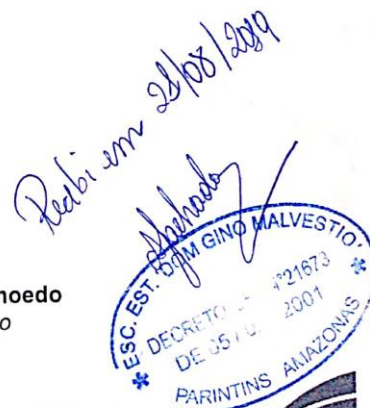 Recebi em 28/08/2019
Machado
noedo
o
ESC. EST. DOM GINO MALVESTIO
DECRETO Nº21673
DE 05 2001
PARINTINS AMAZONAS